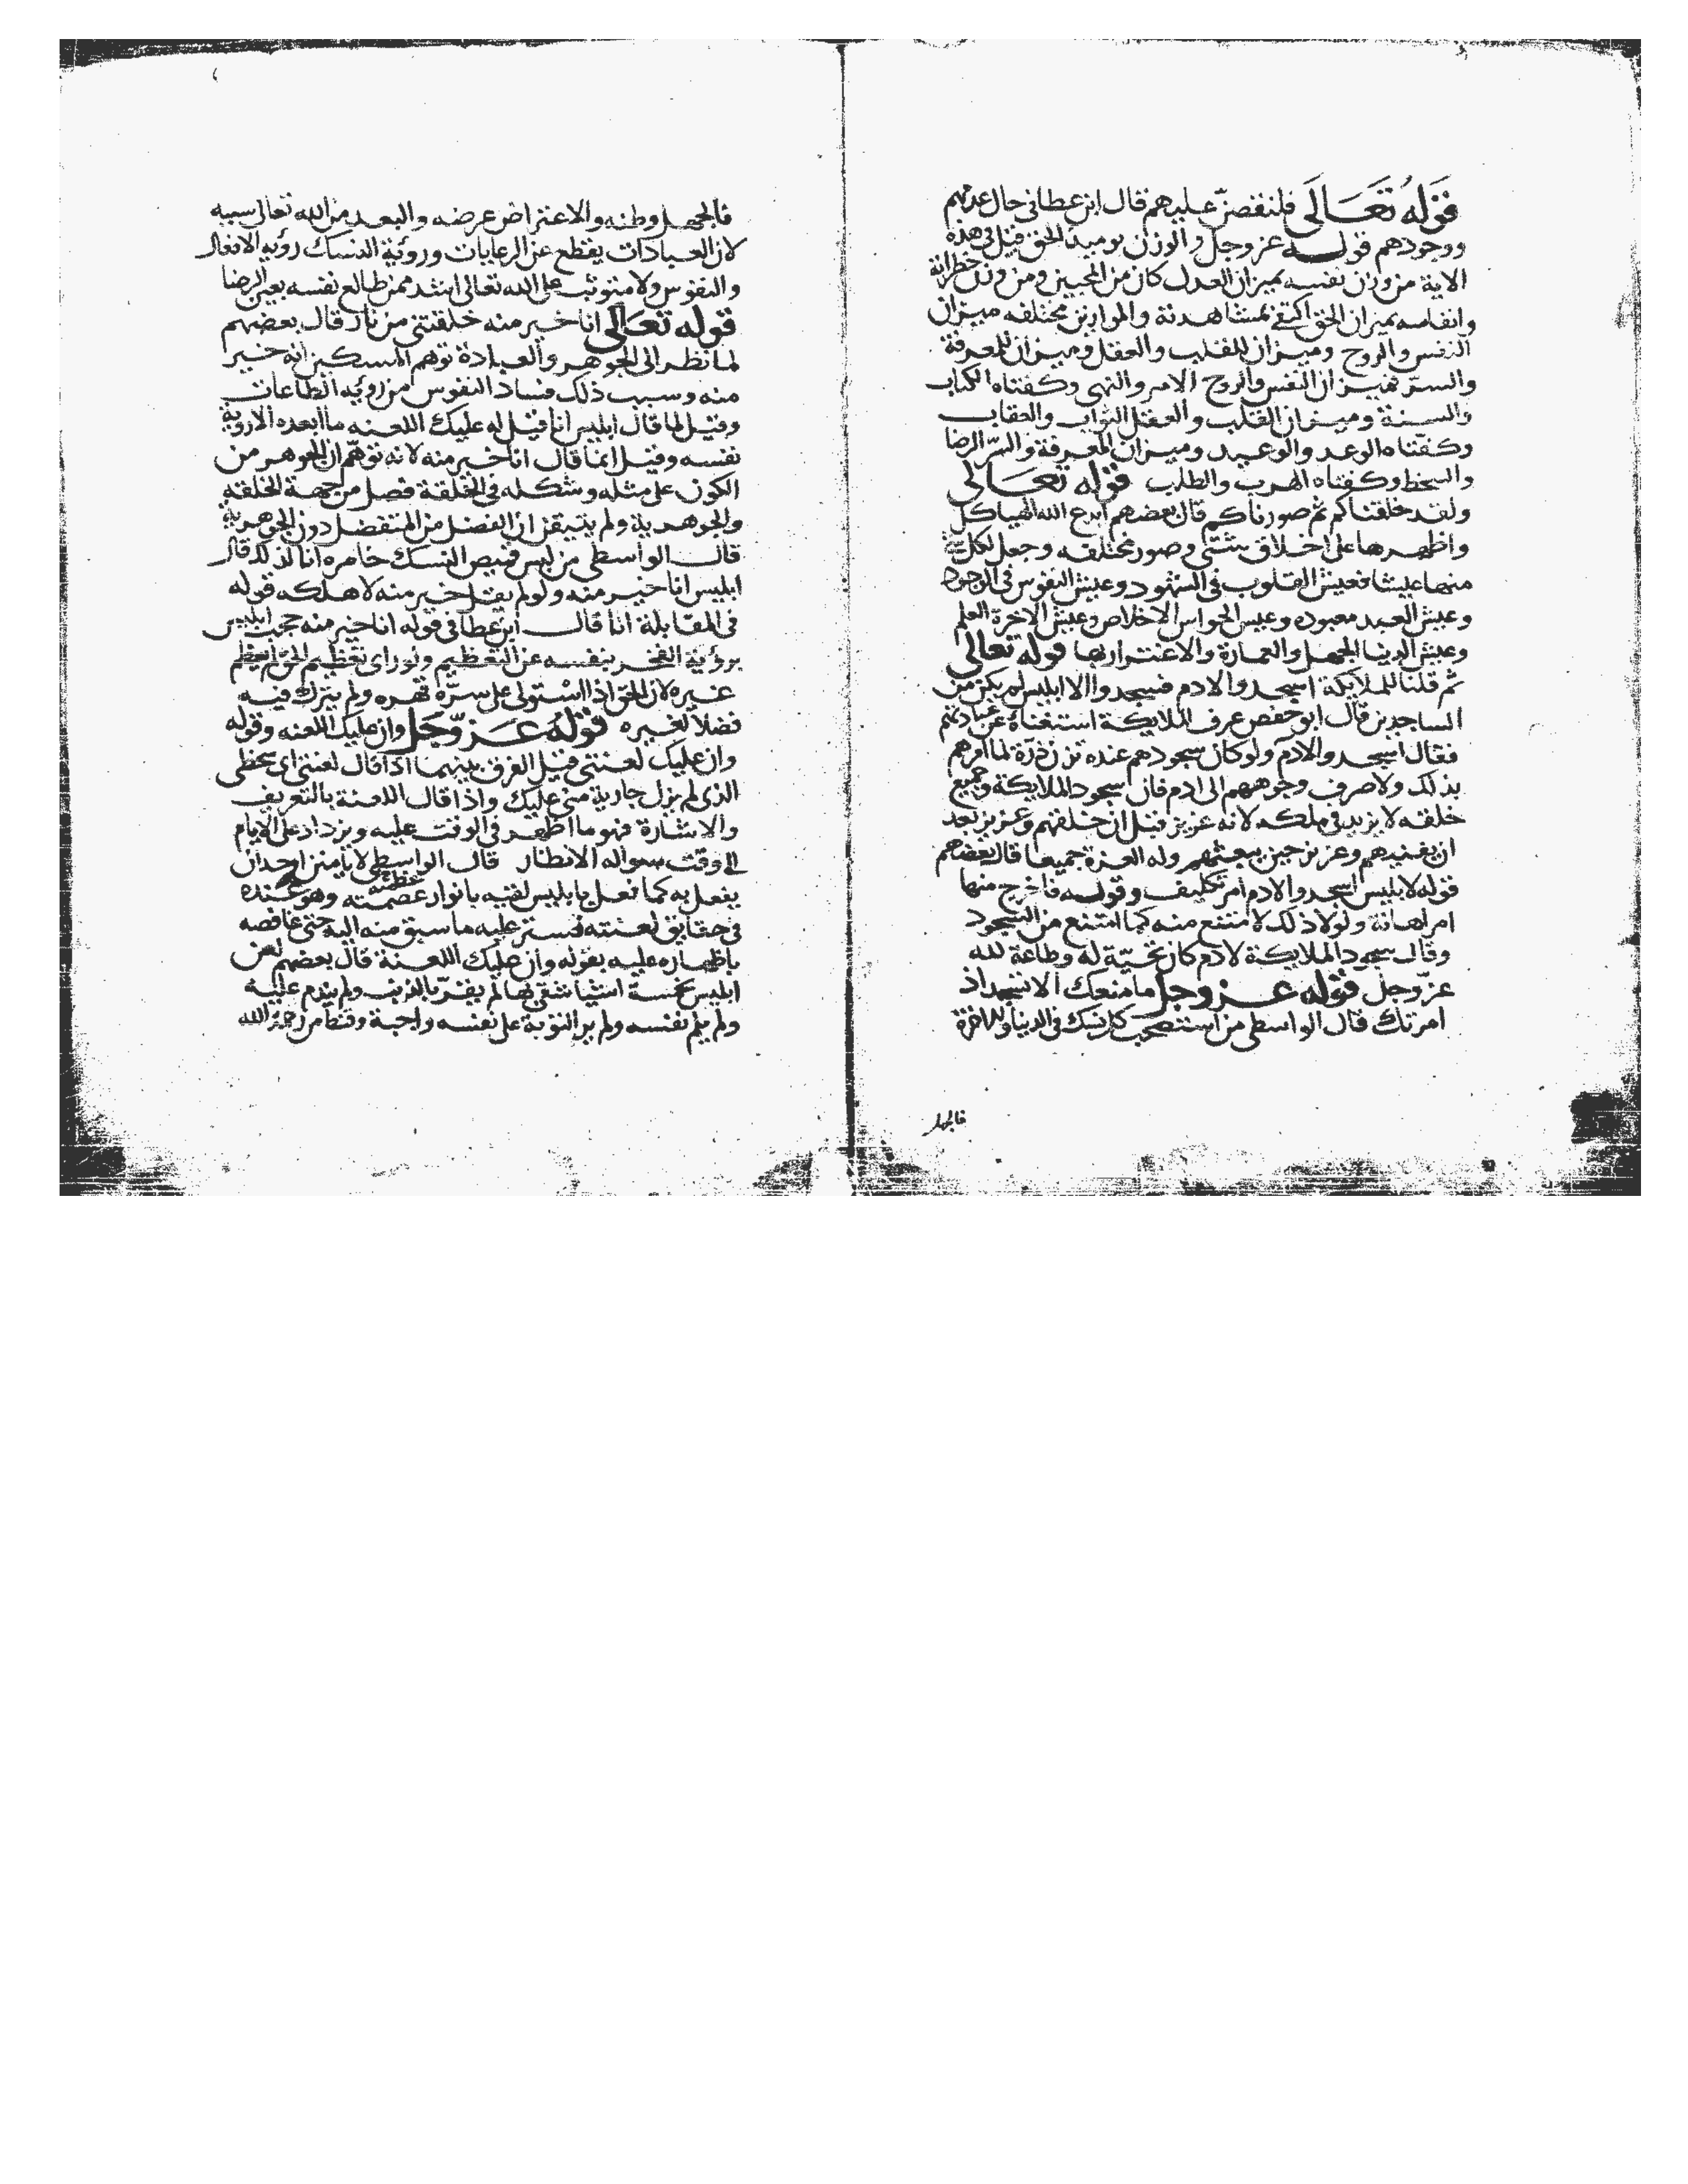 قوله تعالى فلنقصن عليهم قال ابن عطا في حال عدمهم
ووجودهم قوله عز وجل والوزن يوميذ الحق قيل في هذه
الاية من وزن نفسه بميزان العدل كان من المخبتين ومن وزن خطراته
وانفاسه بميزان الحق اكتفى بمشاهدته والموازين مختلفه ميزان
النفس والروح وميزان للقلب والعقل وميزان للمعرفة
والسر فميزان النفس والروح الامر والنهى وكفتاه الكتاب
والسنة وميزان القلب والعقل الثواب والعقاب
وكفتاه الوعد والوعيد وميزان المعرفة والسر الرضا
والسخط وكفتاه الهرب والطلب قوله تعالى
ولقد خلقناكم ثم صورناكم قال بعضهم ابدع الله الهياكل
واظهرها على اخلاق شتى وصور مختلفه وجعل لكل
منها عيشا فعيش القلوب فى الشهود وعيش النفوس فى الوجود
وعيش العبد معبوده وعيش الحواس الاخلاص وعيش الاخرة العلم
وعيش الدنيا الجهل والعمارة والاغترار بها قوله تعالى
ثم قلنا للملايكة اسجدوا لادم فسجدوا الا ابليس لم يكن من
الساجدين قال ابو حفص عرف الملايكة استغناه عن عبادتهم
فقال اسجدوا لادم ولو كان سجودهم عنده تزن ذرة لما امرهم
بذلك ولا صرف وجوههم الى ادم فان سجود الملايكة وجميع
خلقه لا يزيد فى ملكه لانه عزيز قبل ان خلقهم وعزيز بعد
ان يفنيهم وعزيز حين يبعثهم وله العزة جميعا قال بعضهم
قوله لابليس اسجدوا لادم امر تكليف وقوله فاخرج منها
امر اهانة ولولا ذلك لامتنع منه كما امتنع من السجود
وقال سجود الملايكة لادم كان تحية له وطاعة لله
عز وجل قوله عز وجل ما منعك الا تسجد اذ
امرتك قال الواسطى من استصحب كل نسك فى الدنيا والاخرة
فالجهل
فالجهل وطنه والاعتراض عرضه والبعد من الله تعالى سببه
لان العبادات يقطع عن الرعايات وروئية النسك رؤيه الافعال
والنفوس ولا متوثب على الله تعالى اشد ممن طالع نفسه بعين الرضا
قوله تعالى انا خير منه خلقتنى من نار قال بعضهم
لما نظر الى الجوهر والعبادة توهم المسكين انه خير
منه وسبب ذلك فساد النفوس من رؤيه الطاعات
وقيل لما قال ابليس انا قيل له عليك اللعنه ما ابعده الا روية
نفسه وقيل انما قال انا خير منه لانه توهم ان الجوهر من
الكون على مثله وشكله فى الخلقة فضل من جهة الخلقه
والجوهرية ولم يتيقن ان الفضل من المتفضل دون الجوهرية
قال الواسطى من لبس قميص النسك خامره انا لذلك قال
ابليس انا خير منه ولو لم يقل خير منه لاهلكه قوله
فى المقابلة انا قال ابن عطا فى قوله انا خير منه حجب ابليس
برؤية الفخر بنفسه عن التعظيم ولو راى تعظيم الحق لم يعظم
غيره لان الحق اذا استولى على سره قهره ولم يترك فيه
فضلا لغيره قوله عز وجل وان عليك اللعنه وقوله
وان عليك لعنتى قيل الفرق بينهما اذا قال لعنتى اى سخطى
الذى لم يزل جارية منى عليك واذا قال اللعنة بالتعريف
والاشارة فهو ما اظهر فى الوقت عليه ويزداد على الايام
الى وقت سواله الانظار قال الواسطى لا يامنن احد ان
يفعل به كما فعل بابليس لقيه بانوار عصمته وهو عنده
فى حقايق لعنته فستر عليه ما سبق منه اليه حتى غافصه
باظهاره عليه بقوله وان عليك اللعنة قال بعضهم لعن
ابليس بخمسة اشيا شقى بها لم يقر بالذنب ولم يندم عليه
ولم يلم نفسه ولم ير التوبة على نفسه واجبة وقنط من رحمة الله